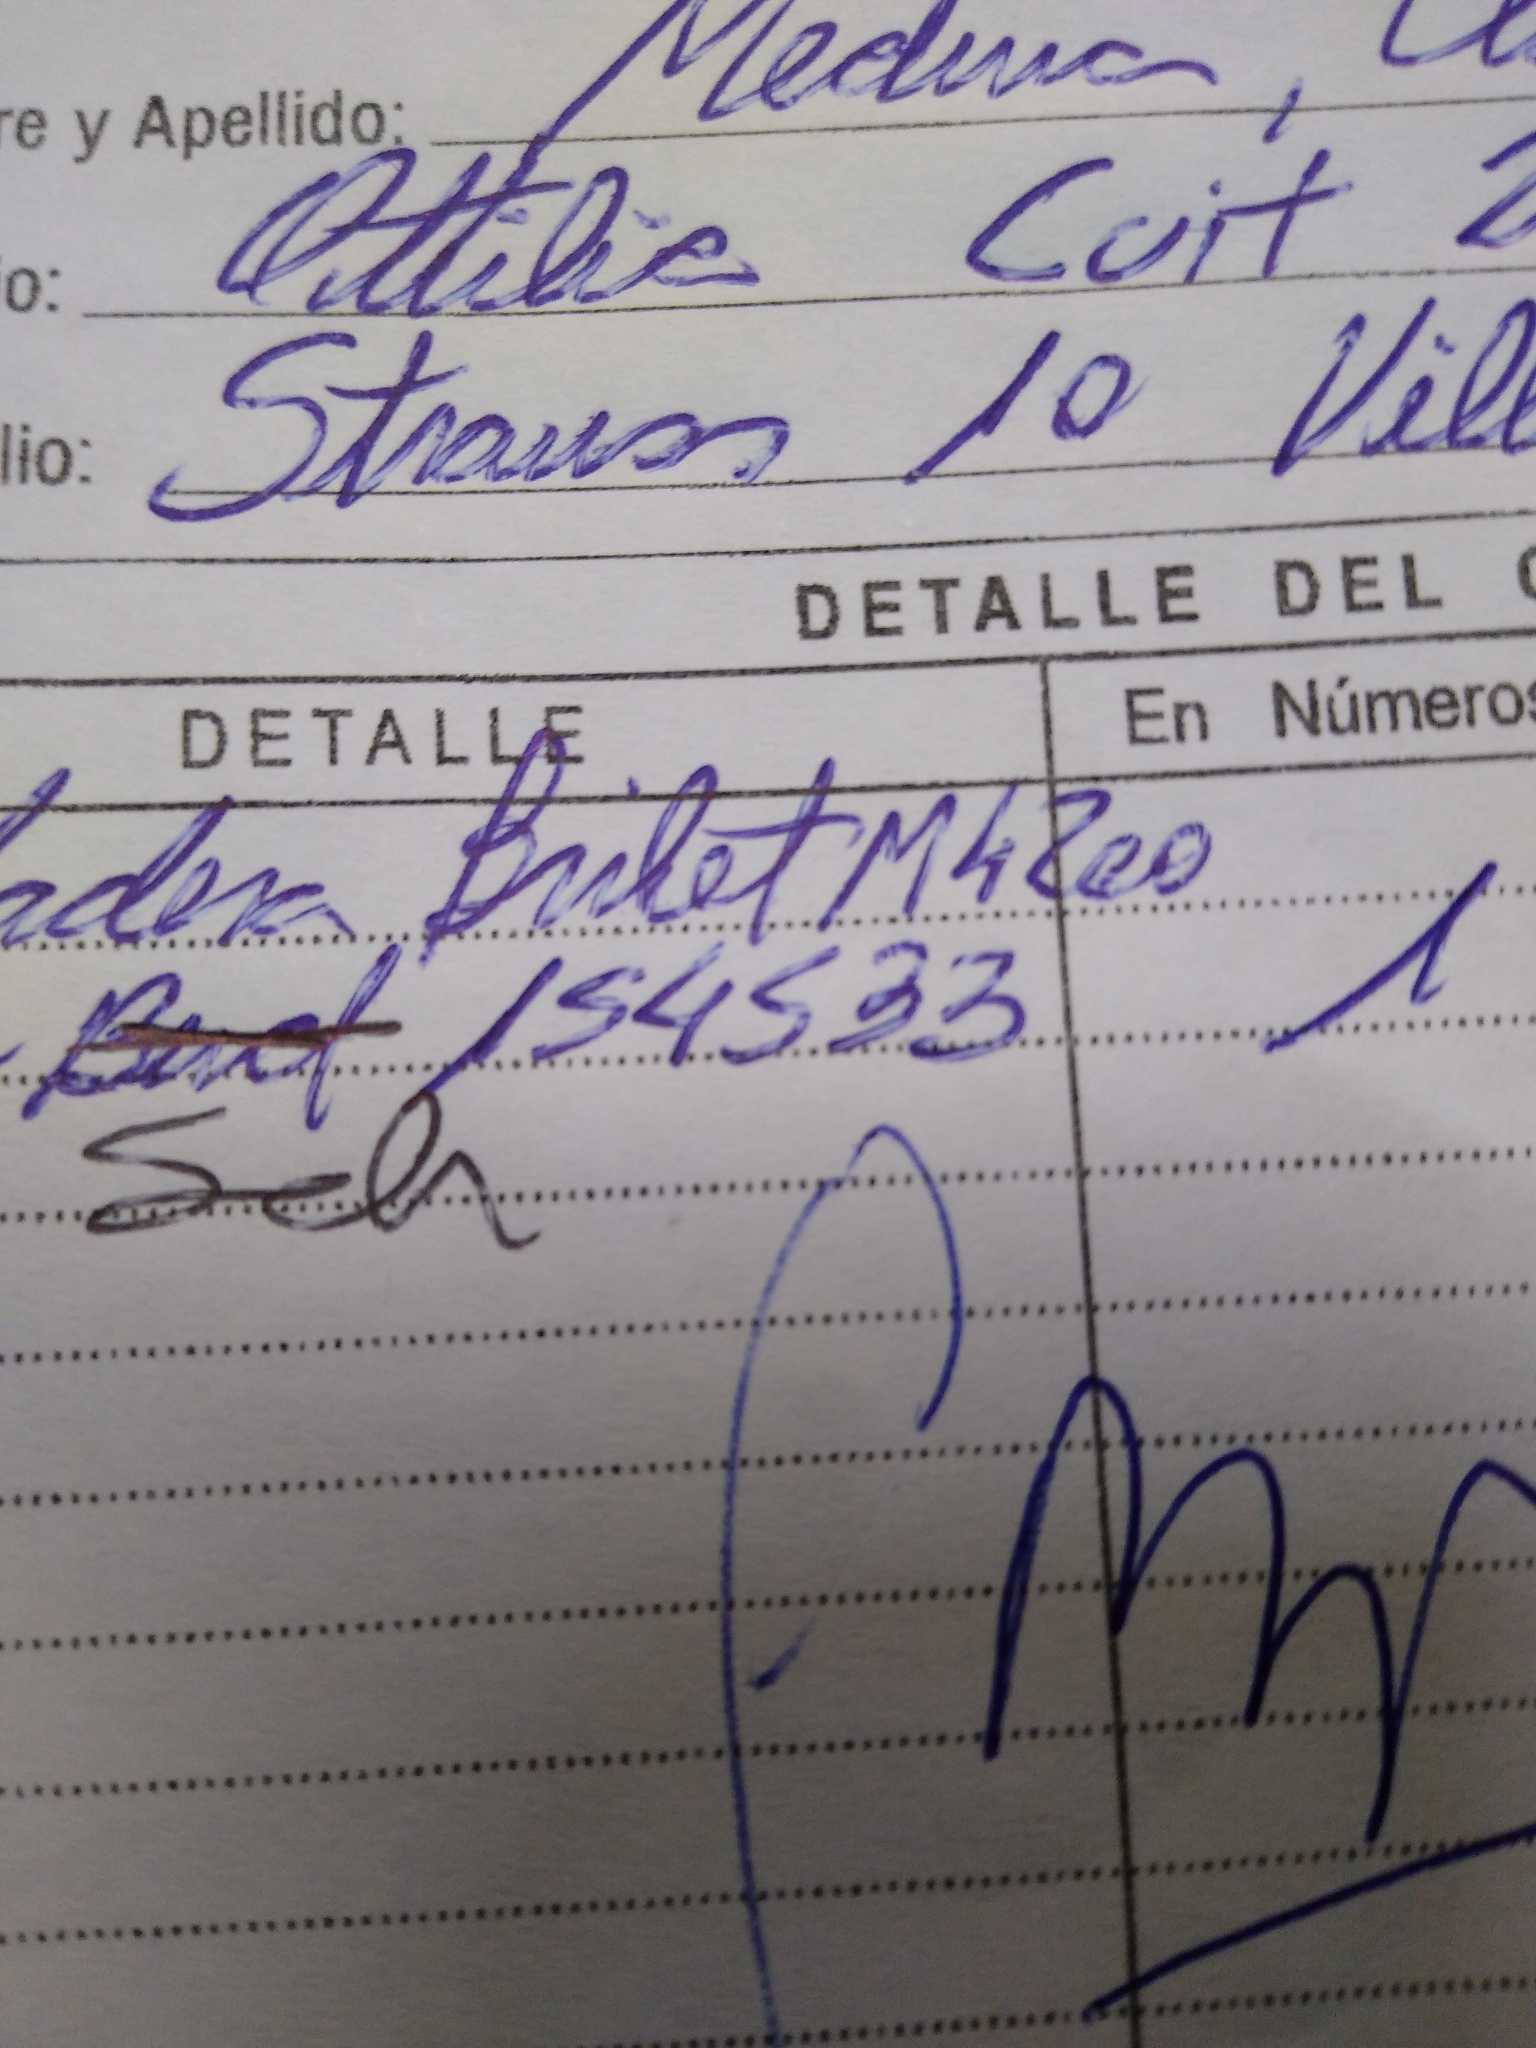 re y Apellido: Medina, Cl
io: Ottilie Cuit 2
lio: Strauss 10 Vill
DETALLE DEL C
DETALLE En Números
adera M4200
154533 1